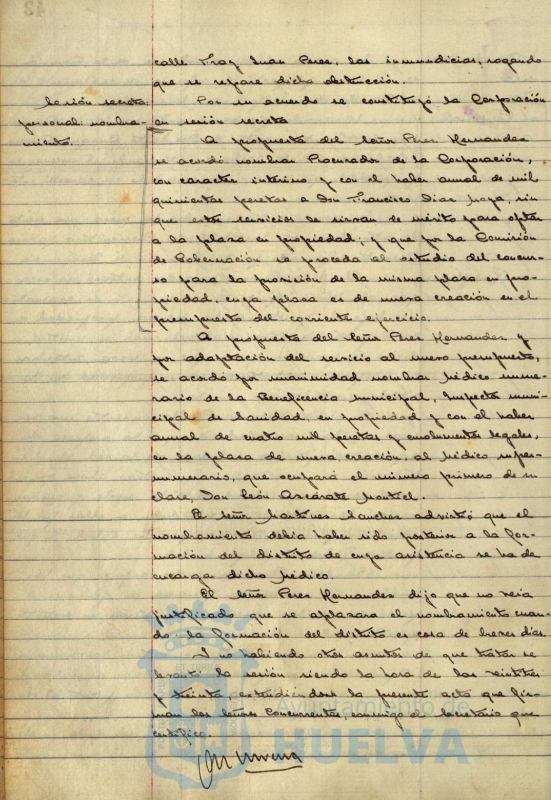 calle Fray Juan Perez, las inmundicias, rogando
que se repare dicha obstrucción.
Sesión secreta:
personal: nombra-
miento.
Por su acuerdo se constituyó la Corporación
en sesión secreta
A propuesta del Señor Perez Hernandez
se acordó nombrar Procurador de la Corporación,
con caracter interino y con el haber anual de mil
quinientas pesetas a Don Francisco Diaz, sin
que estos servicios le sirvan de mérito para optar
a la plaza en propiedad; y que por la Comisión
de Gobernación se proceda al estudio del concur-
so para la provisión de la misma plaza en pro-
piedad, cuya plaza es de nueva creación en el
presupuesto del corriente ejercicio.
A propuesta del Señor Perez Hernandez y
por adaptación del servicio al nuevo presupuesto,
se acordó por unanimidad nombrar Médico nume-
rario de la Beneficencia municipal, Inspector muni-
cipal de Sanidad, en propiedad y con el haber
anual de cuatro mil pesetas y emolumentos legales,
en la plaza de nueva creación, al Médico super-
numerario, que ocupará el número primero de su
clase, Don León Azcárate Montiel.
El Señor Martinez Sanchez advirtió que el
nombramiento debia haber sido posterior a la for-
mación del distrito de cuya asistencia se ha de
encargar dicho Médico.
El Señor Perez Hernandez dijo que no veia
justificado que se aplazara el nombramiento cuan-
do la formación del distrito es cosa de breves dias.
I no habiendo otros asuntos de que tratar se
levantó la sesión siendo la hora de las veintitres
y treinta, extendiendose la presente acta que fir-
man los Señores Concurrentes, conmigo el Secretario que
certifico.
Ayuntamiento de
HUELVA